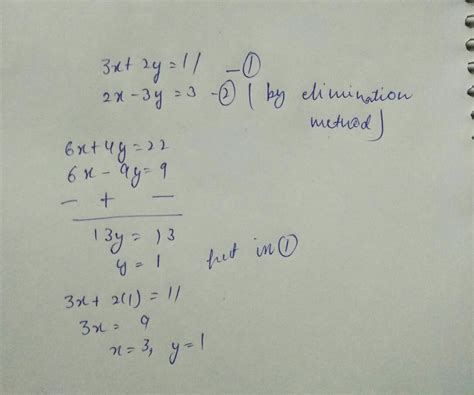 3x + 2y = 11 — ①
2x - 3y = 3 - ② ( by elimination method)
6x + 4y = 22
6x - 9y = 9
- + -
13y = 13
y = 1 put in ①
3x + 2(1) = 11
3x = 9
x = 3, y = 1